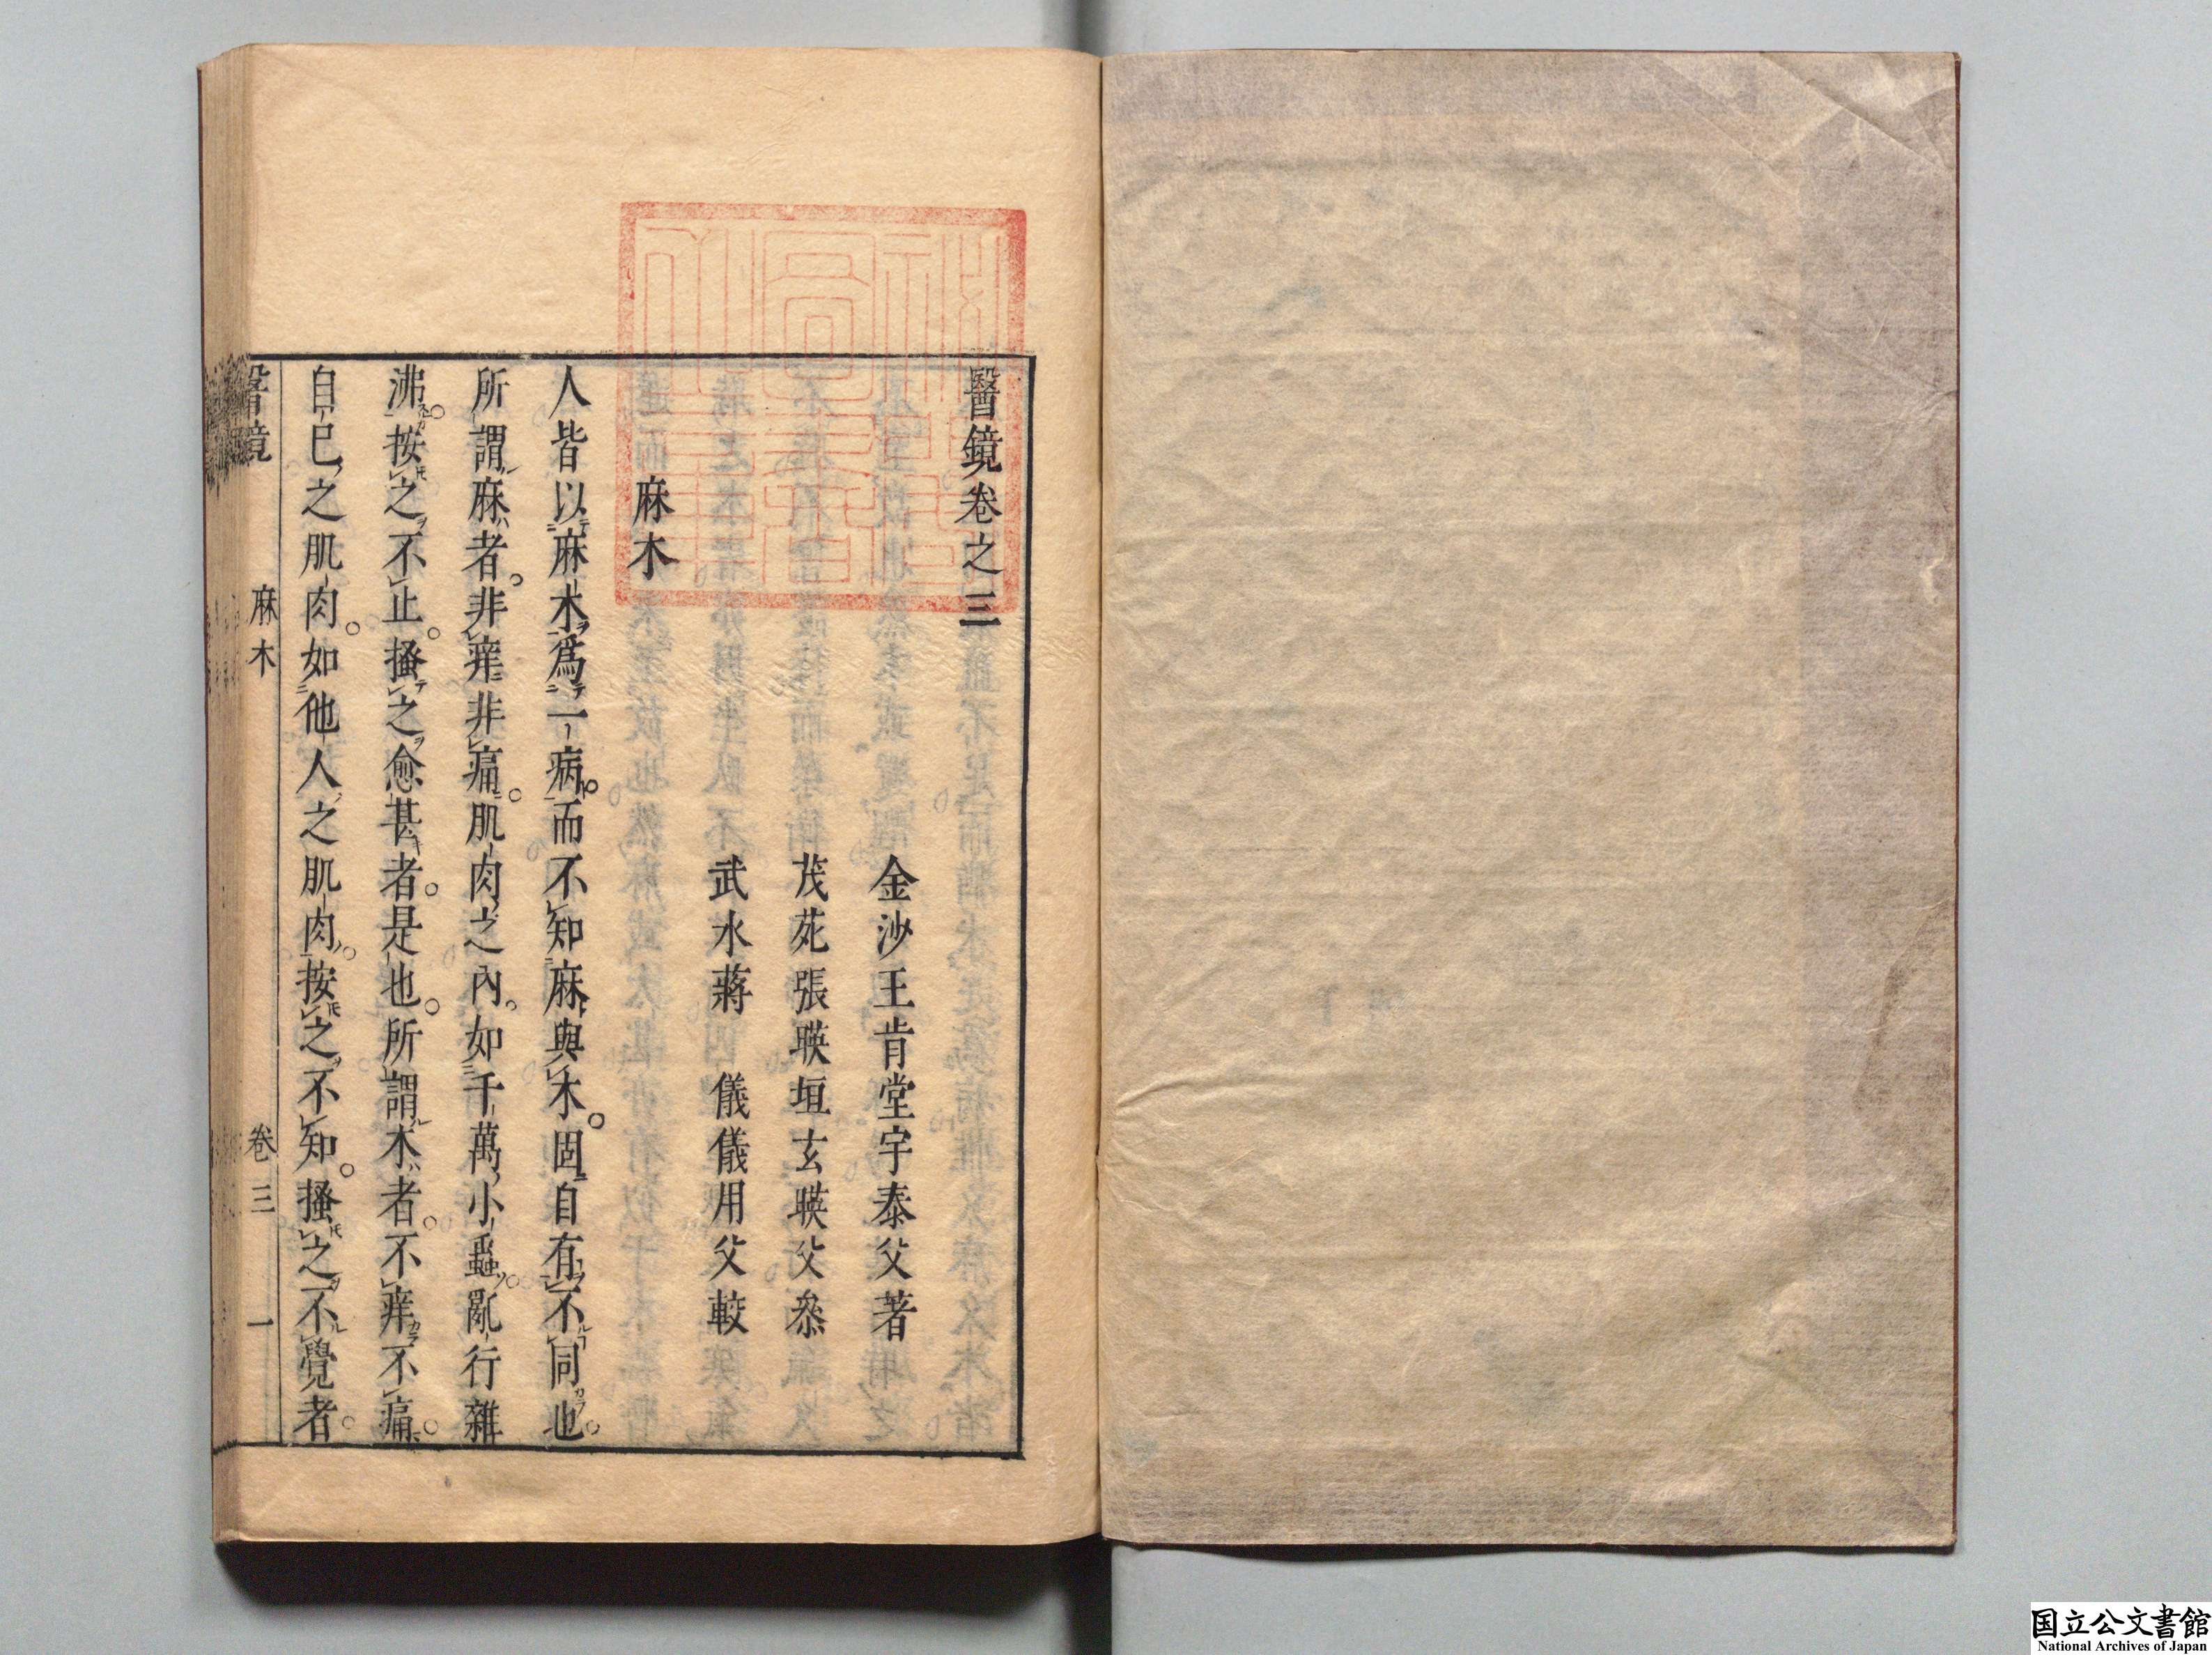 醫鏡卷之三
金沙王肯堂宇泰父著
茂苑張暎垣玄暎父叅
武水蔣　儀儀用父較
麻木
人皆以麻木爲一病。而不知麻與木。固自有不同也。
所謂麻者。非痒非痛。肌肉之內。如千萬小蟲。亂行雜
沸。按之不止。搔之愈甚者。是也。所謂木者。不痒不痛。
自己之肌肉。如他人之肌肉。按之不知。搔之不覺者。
醫鏡　麻木　卷三　一
国立公文書館
National Archives of Japan